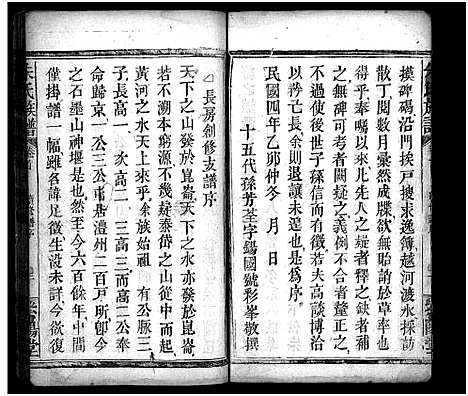 摸碑碣沿門挨戶搜求逸簿越河渡水採訪
散丁閱數月彙然成牒欲無貽誚於草率也
得乎奉囑以來凡先人之疑者釋之缺者補
之無可考者闕疑之義例不合者釐正之
不過欲後世子孫信而有徵若夫高談博洽
見聞之長余則退讓未遑也是為序
民國四年乙卯仲冬 月 日
十五代孫芳荃字錫國號彩峯敬撰
長房創修支譜序
天下之山發於崑崙天下之水亦發於崑崙
若不溯本窮源不幾疑泰岱之山從中而起
黃河之水天上來乎余族始祖有公厥三
子長高一公次高二公三高三公
命歸京一公三公東居澧州二百戶所卽今
之石墨山神堰是也然至今六百餘年中間
僅掛譜一幅雖名諱足徵生没未詳今欲復
族譜